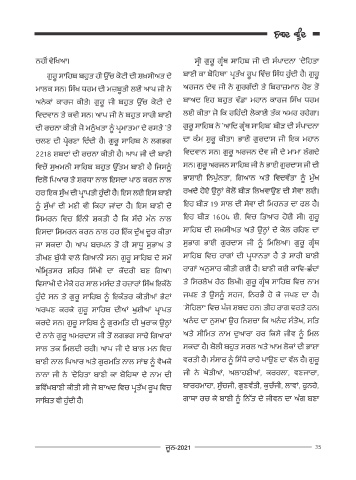 ਨਹੀਂ ਵੇਖਿਆ।
ਗੁਰੂ ਸਾਹਿਬ ਬਹੁਤ ਹੀ ਉੱਚ ਕੋਟੀ ਦੀ ਸ਼ਖ਼ਸੀਅਤ ਦੇ
ਮਾਲਕ ਸਨ। ਸਿੱਖ ਧਰਮ ਦੀ ਮਜ਼ਬੂਤੀ ਲਈ ਆਪ ਜੀ ਨੇ
ਅਨੇਕਾਂ ਕਾਰਜ ਕੀਤੇ। ਗੁਰੂ ਜੀ ਬਹੁਤ ਉੱਚ ਕੋਟੀ ਦੇ
ਵਿਦਵਾਨ ਤੇ ਕਵੀ ਸਨ। ਆਪ ਜੀ ਨੇ ਬਹੁਤ ਸਾਰੀ ਬਾਣੀ
ਦੀ ਰਚਨਾ ਕੀਤੀ ਜੋ ਮਨੁੱਖਤਾ ਨੂੰ ਪ੍ਰਮਾਤਮਾ ਦੇ ਰਸਤੇ 'ਤੇ
ਚਲਣ ਦੀ ਪ੍ਰੇਰਣਾ ਦਿੰਦੀ ਹੈ। ਗੁਰੂ ਸਾਹਿਬ ਨੇ ਲਗਭਗ
2218 ਸ਼ਬਦਾਂ ਦੀ ਰਚਨਾ ਕੀਤੀ ਹੈ। ਆਪ ਜੀ ਦੀ ਬਾਣੀ
ਵਿਚੋਂ ਸੁਖਮਨੀ ਸਾਹਿਬ ਬਹੁਤ ਉੱਤਮ ਬਾਣੀ ਹੈ ਜਿਸਨੂੰ
ਦਿਲੋਂ ਪਿਆਰ ਤੇ ਸ਼ਰਧਾ ਨਾਲ ਇਸਦਾ ਪਾਠ ਕਰਨ ਨਾਲ
ਹਰ ਇਕ ਸੁੱਖ ਦੀ ਪ੍ਰਾਪਤੀ ਹੁੰਦੀ ਹੈ। ਇਸ ਲਈ ਇਸ ਬਾਣੀ
ਨੂੰ ਸੁੱਖਾਂ ਦੀ ਮਣੀ ਵੀ ਕਿਹਾ ਜਾਂਦਾ ਹੈ। ਇਸ ਬਾਣੀ ਦੇ
ਸਿਮਰਨ ਵਿਚ ਇੰਨੀ ਸ਼ਕਤੀ ਹੈ ਕਿ ਸੱਚੇ ਮੰਨ ਨਾਲ
ਇਸਦਾ ਸਿਮਰਨ ਕਰਨ ਨਾਲ ਹਰ ਇੱਕ ਦੁੱਖ ਦੂਰ ਕੀਤਾ
ਜਾ ਸਕਦਾ ਹੈ। ਆਪ ਬਚਪਨ ਤੋਂ ਹੀ ਸਾਧੂ ਸੁਭਾਅ ਤੇ
ਤੀਖਣ ਬੁੱਧੀ ਵਾਲੇ ਗਿਆਨੀ ਸਨ। ਗੁਰੂ ਸਾਹਿਬ ਦੇ ਸਮੇਂ
ਅੰਮ੍ਰਿਤਸਰ ਸ਼ਹਿਰ ਸਿੱਖੀ ਦਾ ਕੇਂਦਰੀ ਬਣ ਗਿਆ।
ਵਿਸਾਖੀ ਦੇ ਮੌਕੇ ਹਰ ਸਾਲ ਮਸੰਦ ਤੇ ਹਜ਼ਾਰਾਂ ਸਿੱਖ ਇਕੱਠੇ
ਹੁੰਦੇ ਸਨ ਤੇ ਗੁਰੂ ਸਾਹਿਬ ਨੂੰ ਇਕੱਤਰ ਕੀਤੀਆਂ ਭੇਟਾਂ
ਅਰਪਣ ਕਰਕੇ ਗੁਰੂ ਸਾਹਿਬ ਦੀਆਂ ਖੁਸ਼ੀਆਂ ਪ੍ਰਾਪਤ
ਕਰਦੇ ਸਨ। ਗੁਰੂ ਸਾਹਿਬ ਨੂੰ ਗੁਰਮਤਿ ਦੀ ਖੁਰਾਕ ਉਨ੍ਹਾਂ
ਦੇ ਨਾਨੇ ਗੁਰੂ ਅਮਰਦਾਸ ਜੀ ਤੋਂ ਲਗਭਗ ਸਾਢੇ ਗਿਆਰਾਂ
ਸਾਲ ਤਕ ਮਿਲਦੀ ਰਹੀ। ਆਪ ਜੀ ਦੇ ਬਾਲ ਮਨ ਵਿਚ
ਬਾਣੀ ਨਾਲ ਪਿਆਰ ਅਤੇ ਗੁਰਮਤਿ ਨਾਲ ਸਾਂਝ ਨੂੰ ਵੇਖਕੇ
ਨਾਨਾ ਜੀ ਨੇ 'ਦੋਹਿਤਾ ਬਾਣੀ ਕਾ ਬੋਹਿਥਾ' ਦੇ ਨਾਮ ਦੀ
ਭਵਿੱਖਬਾਣੀ ਕੀਤੀ ਸੀ ਜੋ ਬਾਅਦ ਵਿਚ ਪ੍ਰਤੱਖ ਰੂਪ ਵਿਚ
ਸਾਬਿਤ ਵੀ ਹੁੰਦੀ ਹੈ।
ਸ੍ਰੀ ਗੁਰੂ ਗ੍ਰੰਥ ਸਾਹਿਬ ਜੀ ਦੀ ਸੰਪਾਦਨਾ 'ਦੋਹਿਤਾ
ਬਾਣੀ ਕਾ ਬੋਹਿਥਾ' ਪ੍ਰਤੱਖ ਰੂਪ ਵਿੱਚ ਸਿੱਧ ਹੁੰਦੀ ਹੈ। ਗੁਰੂ
ਅਰਜਨ ਦੇਵ ਜੀ ਨੇ ਗੁਰਗੱਦੀ ਤੇ ਬਿਰਾਜਮਾਨ ਹੋਣ ਤੋਂ
ਬਾਅਦ ਇਹ ਬਹੁਤ ਵੱਡਾ ਮਹਾਨ ਕਾਰਜ ਸਿੱਖ ਧਰਮ
ਲਈ ਕੀਤਾ ਜੋ ਕਿ ਰਹਿੰਦੀ ਲੋਕਾਈ ਤੱਕ ਅਮਰ ਰਹੇਗਾ।
ਗੁਰੂ ਸਾਹਿਬ ਨੇ 'ਆਦਿ ਗ੍ਰੰਥ ਸਾਹਿਬ' ਬੀੜ ਦੀ ਸੰਪਾਦਨਾ
ਦਾ ਕੰਮ ਸ਼ੁਰੂ ਕੀਤਾ। ਭਾਈ ਗੁਰਦਾਸ ਜੀ ਇਕ ਮਹਾਨ
ਵਿਦਵਾਨ ਸਨ। ਗੁਰੂ ਅਰਜਨ ਦੇਵ ਜੀ ਦੇ ਮਾਮਾ ਲੱਗਦੇ
ਸਨ। ਗੁਰੂ ਅਰਜਨ ਸਾਹਿਬ ਜੀ ਨੇ ਭਾਈ ਗੁਰਦਾਸ ਜੀ ਦੀ
ਭਾਸ਼ਾਈ ਨਿਪੁੰਨਤਾ, ਗਿਆਨ ਅਤੇ ਵਿਦਵੱਤਾ ਨੂੰ ਮੁੱਖ
ਰਖਦੇ ਹੋਏ ਉਨ੍ਹਾਂ ਕੋਲੋਂ ਬੀੜ ਲਿਖਵਾਉਣ ਦੀ ਸੇਵਾ ਲਈ।
ਇਹ ਬੀੜ 19 ਸਾਲ ਦੀ ਸੇਵਾ ਦੀ ਮਿਹਨਤ ਦਾ ਫਲ ਹੈ।
ਇਹ ਬੀੜ 1604 ਈ. ਵਿਚ ਤਿਆਰ ਹੋਈ ਸੀ। ਗੁਰੂ
ਸਾਹਿਬ ਦੀ ਸ਼ਖ਼ਸੀਅਤ ਅਤੇ ਉਨ੍ਹਾਂ ਦੇ ਕੋਲ ਰਹਿਣ ਦਾ
ਸੁਭਾਗ ਭਾਈ ਗੁਰਦਾਸ ਜੀ ਨੂੰ ਮਿਲਿਆ। ਗੁਰੂ ਗ੍ਰੰਥ
ਸਾਹਿਬ ਵਿਚ ਰਾਗਾਂ ਦੀ ਪ੍ਰਧਾਨਤਾ ਹੈ ਤੇ ਸਾਰੀ ਬਾਣੀ
ਰਾਗਾਂ ਅਨੁਸਾਰ ਕੀਤੀ ਗਈ ਹੈ। ਬਾਣੀ ਕਈ ਕਾਵਿ-ਛੰਦਾਂ
ਤੇ ਸਿਰਲੇਖ ਹੇਠ ਲਿਖੀ। ਗੁਰੂ ਗ੍ਰੰਥ ਸਾਹਿਬ ਵਿਚ ਨਾਮ
ਜਪਣ ਤੇ ਉਸਨੂੰ ਸਹਜ, ਨਿਰਭੈ ਹੋ ਕੇ ਜਪਣ ਦਾ ਹੈ।
'ਸੋਹਿਲਾ' ਵਿਚ ਪੰਜ ਸ਼ਬਦ ਹਨ। ਤੀਹ ਰਾਗ ਵਰਤੇ ਹਨ।
ਅਨੰਦ ਦਾ ਨੁਸਖ਼ਾ ਉਹ ਨਿਸ਼ਚਾ ਕਿ ਅਨੰਦ ਸੰਤੋਖ, ਸਤਿ
ਅਤੇ ਸੀਮਿਤ ਨਾਮ ਦੁਆਰਾ ਹਰ ਕਿਸੇ ਜੀਵ ਨੂੰ ਮਿਲ
ਸਕਦਾ ਹੈ। ਬੋਲੀ ਬਹੁਤ ਸਰਲ ਅਤੇ ਆਮ ਲੋਕਾਂ ਦੀ ਭਾਸ਼ਾ
ਵਰਤੀ ਹੈ। ਸੰਸਾਰ ਨੂੰ ਸਿੱਧੇ ਰਾਹੇ ਪਾਉਣ ਦਾ ਵੱਲ ਹੈ। ਗੁਰੂ
ਜੀ ਨੇ ਘੋੜੀਆਂ, ਅਲਾਹਣੀਆਂ, ਕਰਹਲਾ, ਵਣਜਾਰਾ,
ਬਾਰਹਮਾਹਾ, ਸੁੱਚਜੀ, ਗੁਣਵੰਤੀ, ਕੁਚੱਜੀ, ਲਾਵਾਂ, ਫੁਨਹੇ,
ਗਾਥਾ ਰਚ ਕੇ ਬਾਣੀ ਨੂੰ ਨਿੱਤ ਦੇ ਜੀਵਨ ਦਾ ਅੰਗ ਬਣਾ
ਜੂਨ-2021
35